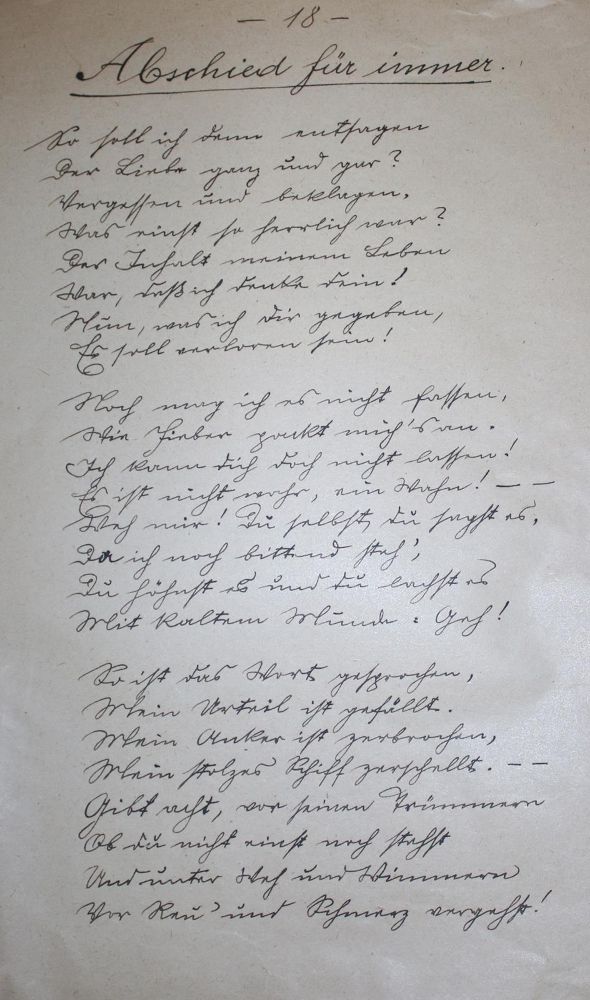 – 18 –
Abschied für immer.
So soll ich denn entsagen
Der Liebe ganz und gar?
Vergessen und beklagen,
Was einst so herrlich war?
Der Inhalt meinem Leben
War, daß ich denke dein!
Nun, was ich dir gegeben,
Es soll verloren sein!
Noch mag ich es nicht fassen,
Wie Fieber packt mich's an.
Ich kann dich doch nicht lassen!
Es ist nicht wahr, ein Wahn! – –
Weh mir! Du selbst, du sagst es,
Da ich noch bittend steh',
Du höhnst es und du lachst es
Mit kaltem Munde: Geh!
So ist das Wort gesprochen,
Mein Urteil ist gefällt.
Mein Anker ist zerbrochen,
Mein stolzes Schiff zerschellt. – –
Gibt acht, vor seinen Trümmern
Ob du nicht einst noch stehst
Und unter Weh und Wimmern
Vor Reu' und Schmerz vergehst!